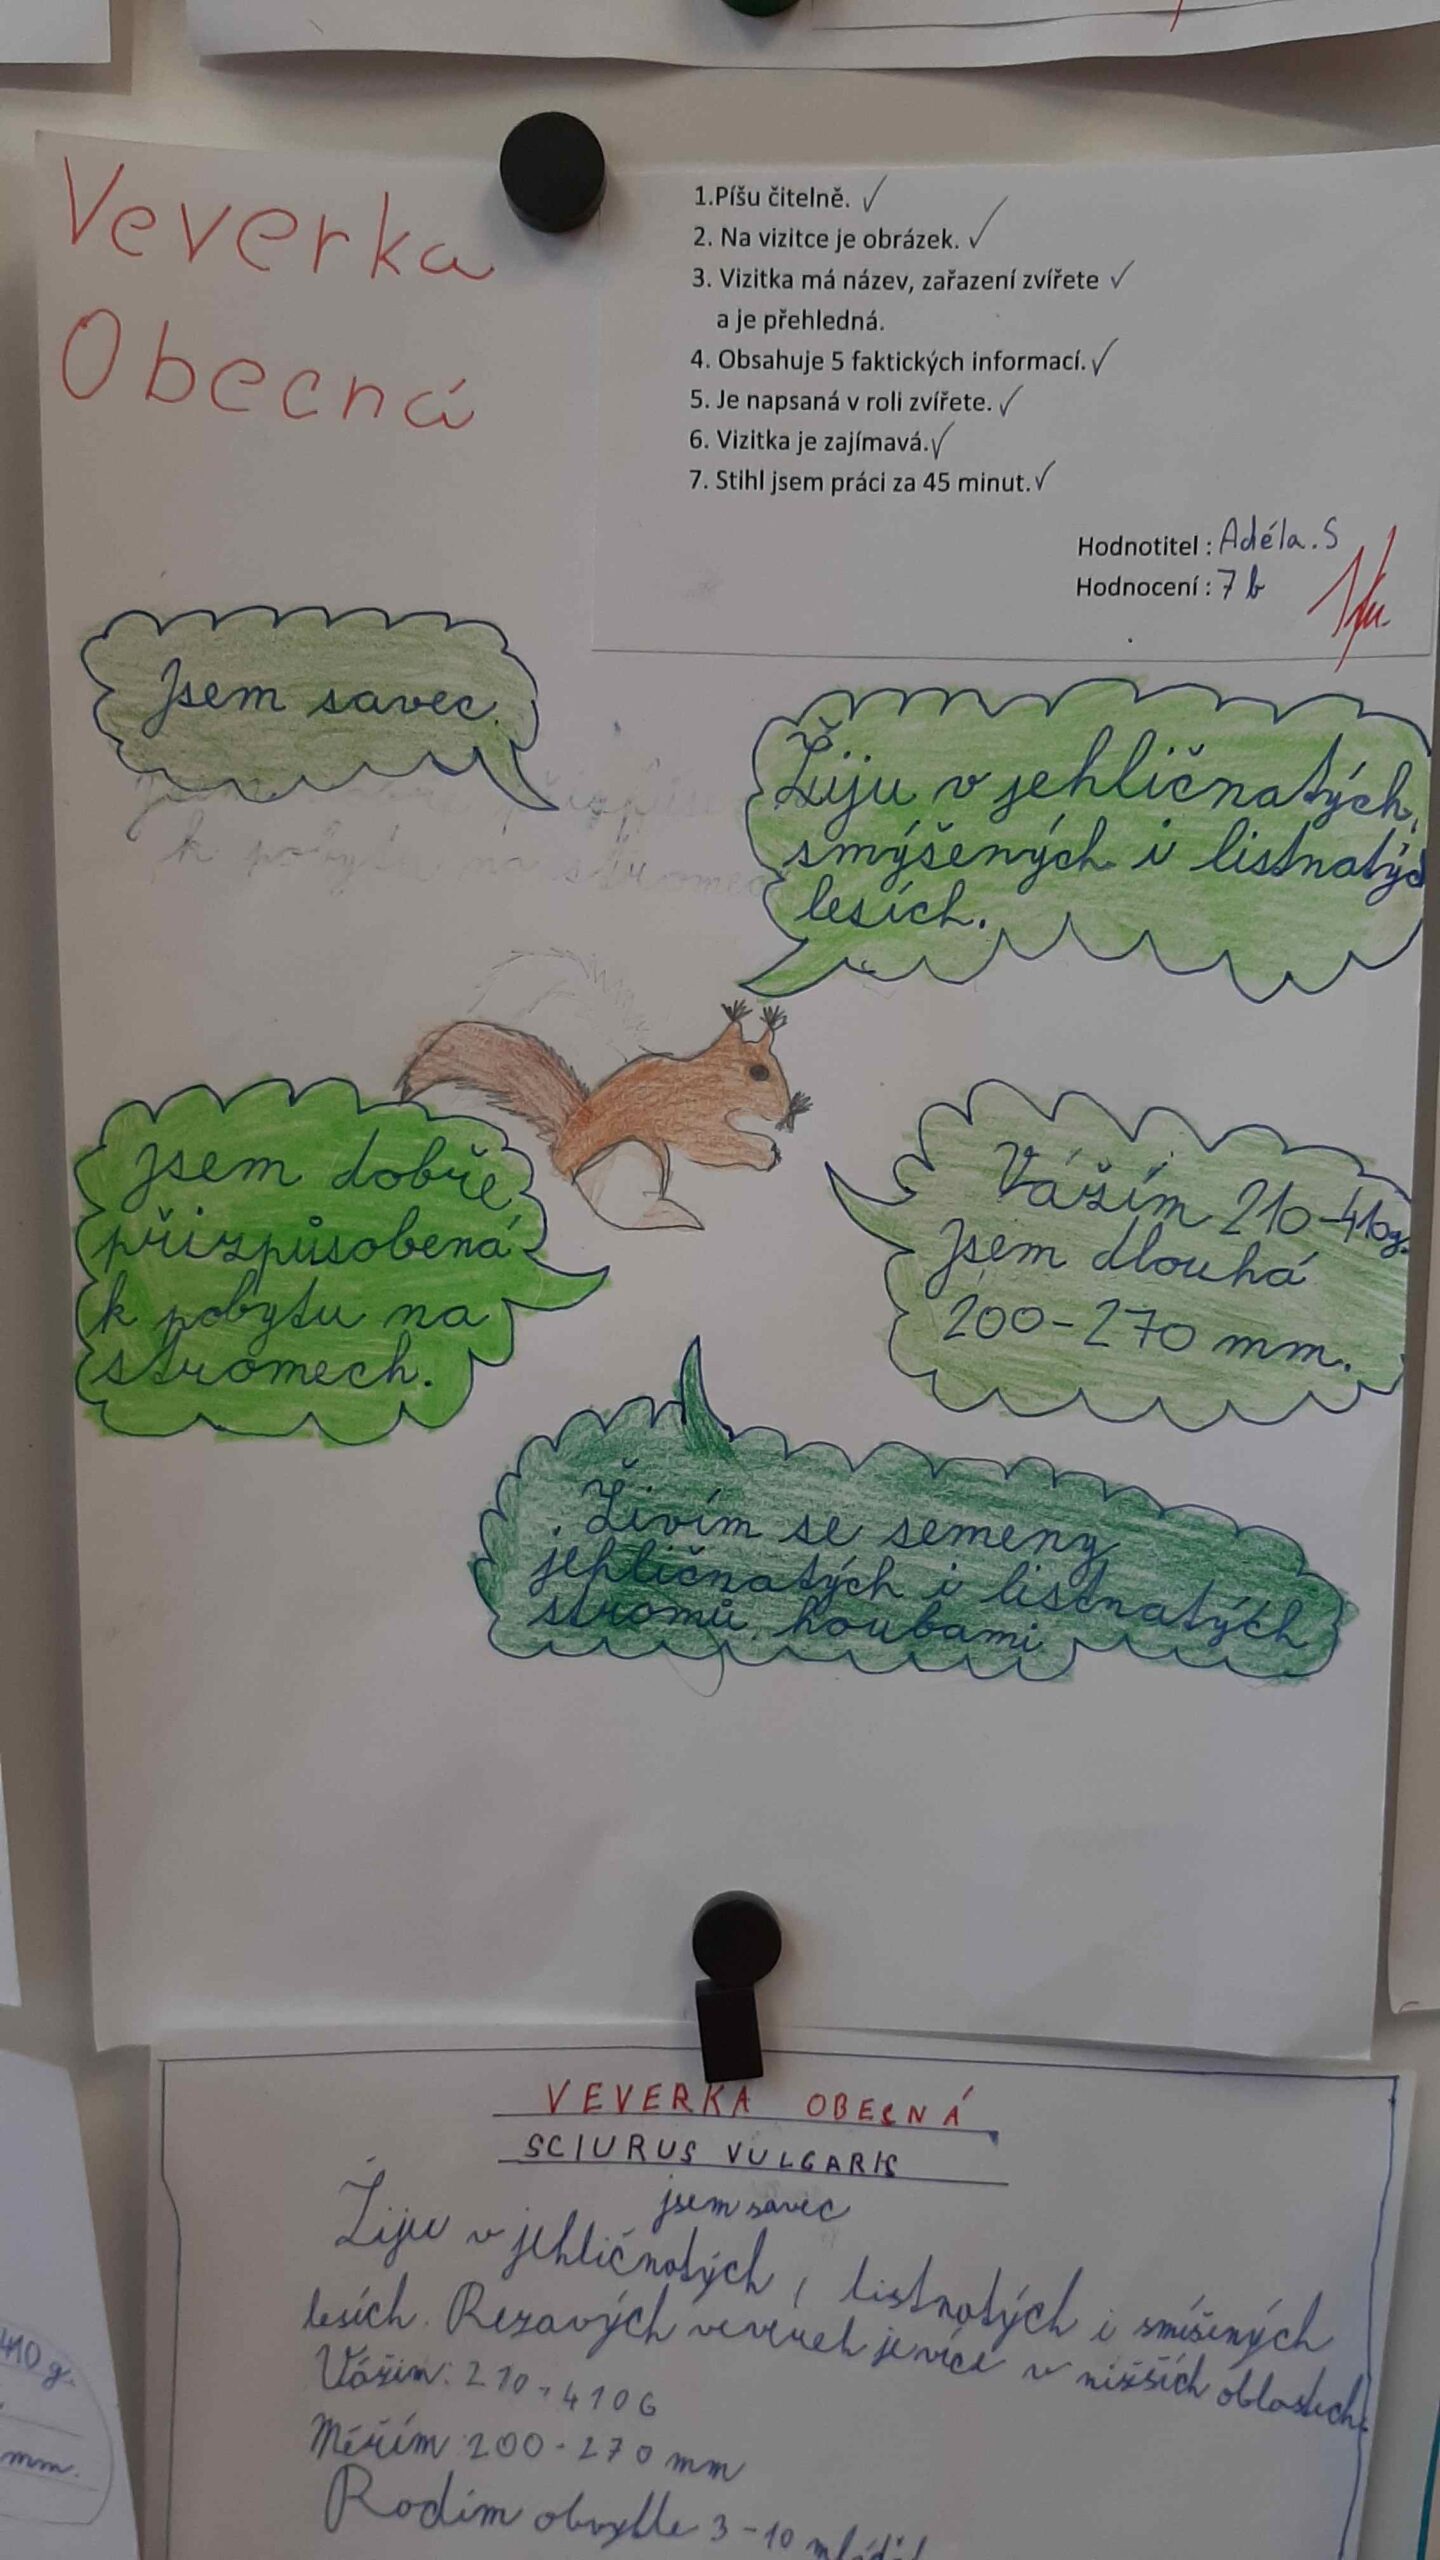 Veverka
Obecná
1.Píšu čitelně. ✓
2. Na vizitce je obrázek. ✓
3. Vizitka má název, zařazení zvířete ✓
a je přehledná.
4. Obsahuje 5 faktických informací. ✓
5. Je napsaná v roli zvířete. ✓
6. Vizitka je zajímavá. ✓
7. Stihl jsem práci za 45 minut. ✓
Hodnotitel : Adéla.S
Hodnocení : 7 b
Jsem savec.
k pobytu na stromech
Žiju v jehličnatých,
smýšených i listnatých
lesích.
Jsem dobře
přizpůsobená
k pobytu na
stromech.
Vážím 210-410g.
Jsem dlouhá
200-270 mm.
Živím se semeny
jehličnatých i listnatých
stromů, houbami
VEVERKA OBECNÁ
SCIURUS VULGARIS
jsem savec
Žiju v jehličnatých, listnatých i smíšených
lesích. Rezavých veverek je více v nižších oblastech.
Vážím: 210-410G
Měřím 200-270 mm
Rodím obvykle 3-10 mláďat
410 g.
mm.